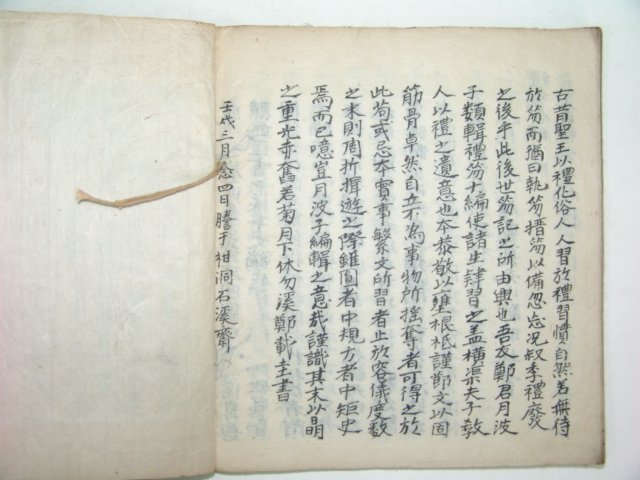 古昔聖王以禮化俗人人習於禮習慣自然若無待
於笏而猶曰執笏搢笏以備忽忘況叔季禮廢
之後乎此後世笏記之所由興也吾友鄭君月波
子類輯禮笏十編使諸生肄習之盖橫渠夫子敎
人以禮之遺意也本恭敬以壅根柢謹節文以固
筋骨卓然自立不為事物所搖奪者可得之於
此苟或忘本實事繁文所習者止於容儀度數
之末則周折揖遊之際雖圓者中規方者中矩史
焉而已噫豈月波子編輯之意哉謹識其末以晶
之重光赤奮若菊月下休勿溪鄭載圭書
壬戌三月念四日謄于柑洞石溪齋